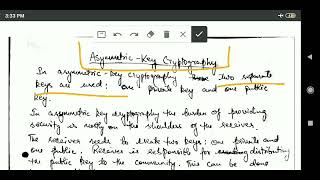 3:33 PM
Asymmetric-Key Cryptography
In asymmetric-key cryptography two separate
keys are used: one private key and one public
key.
In asymmetric key cryptography the burden of providing
security is mostly on the shoulders of the receiver.
The receiver needs to create two keys: one private and
one public. Receiver is responsible for distributing
the public key to the community. This can be done